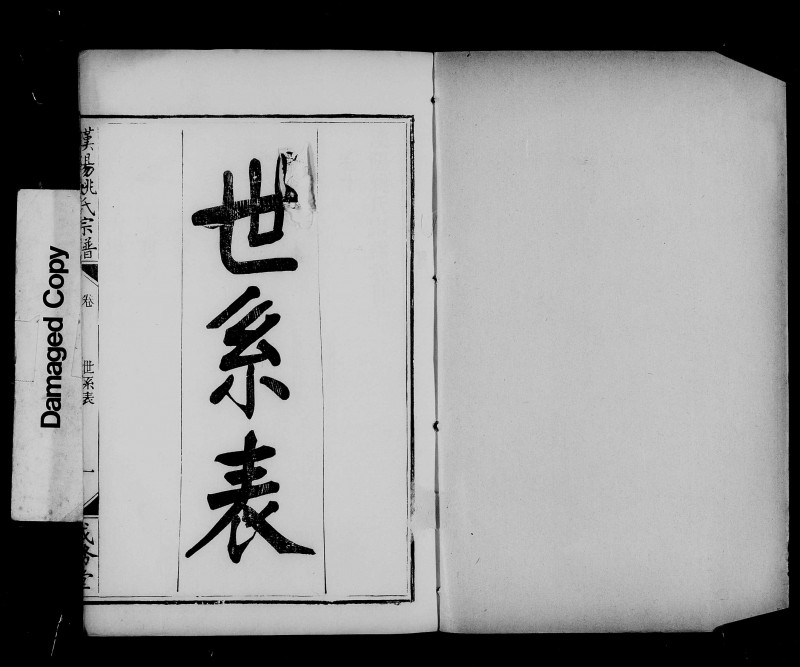 世系表
漢陽姚氏宗譜
卷
世系表
一
成務堂
Damaged Copy